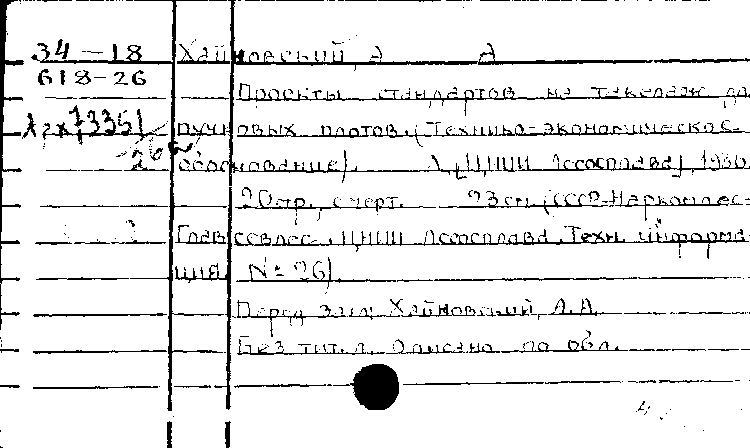 34-18 Хайновский, А А
618-26
Проекты стандартов на такелаж для
Арх 73351 пучковых плотов. (Технико-экономическое
обоснование). Л, [ЦНИИ Лесосплава], 1936.
20стр., с черт. 23см (СССР. Наркомлес-
Главсевлес. ЦНИИ Лесосплава. Техн. информа-
ция № 26).
Перед загл: Хайновский, А. А.
Без тит. л. Описано по обл.